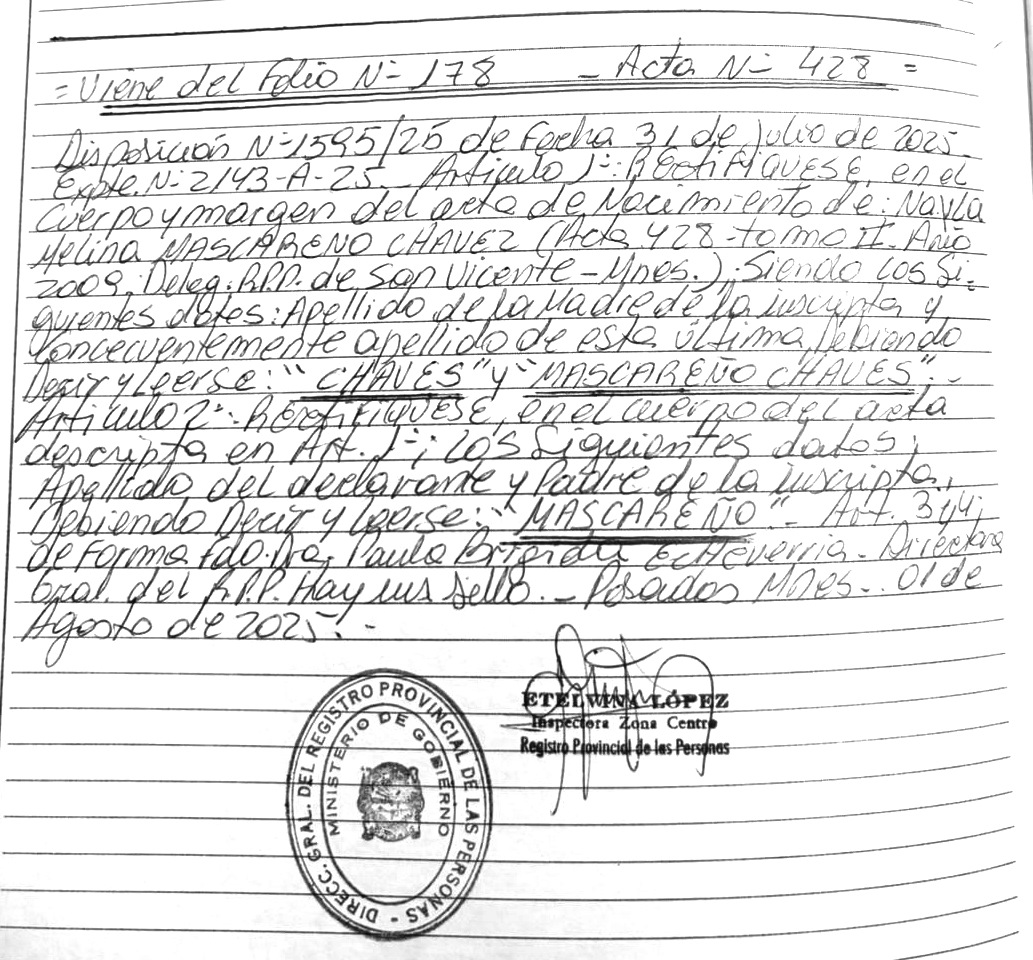 = Viene del Folio Nº 178 - Acta Nº 428 =
Disposición Nº 1595/25 de Fecha 31 de Julio de 2025.
Expte. Nº 2143-A-25. Articulo 1º: RECTIFIQUESE, en el
Cuerpo y margen del acta de Nacimiento de: Nayla
Melina MASCARENO CHAVEZ (Acta 428 - tomo II - Año
2009. Deleg. R.P.P. de San Vicente - Mnes.). Siendo los Si-
guientes datos: Apellido de la Madre de la inscripta y
concecuentemente apellido de esta última, Debiendo
Decir y Leerse: "CHAVES" y "MASCAREÑO CHAVES". -
Articulo 2º: RECTIFIQUESE, en el cuerpo del acta
descripta en Art. 1º; los Siguientes datos;
Apellido del declarante y Padre de la inscripta,
Debiendo Decir y Leerse: "MASCAREÑO" - Art. 3 y 4;
de Forma fdo. Dra. Paula Brigida Echeverria - Directora
Gral. del R.P.P. Hay un Sello. - Posadas Mnes. 01 de
Agosto de 2025. -
ETELVINA LÓPEZ
Inspectora Zona Centro
Registro Provincial de las Personas
DIRECC. GRAL. DEL REGISTRO PROVINCIAL DE LAS PERSONAS -
MINISTERIO DE GOBIERNO